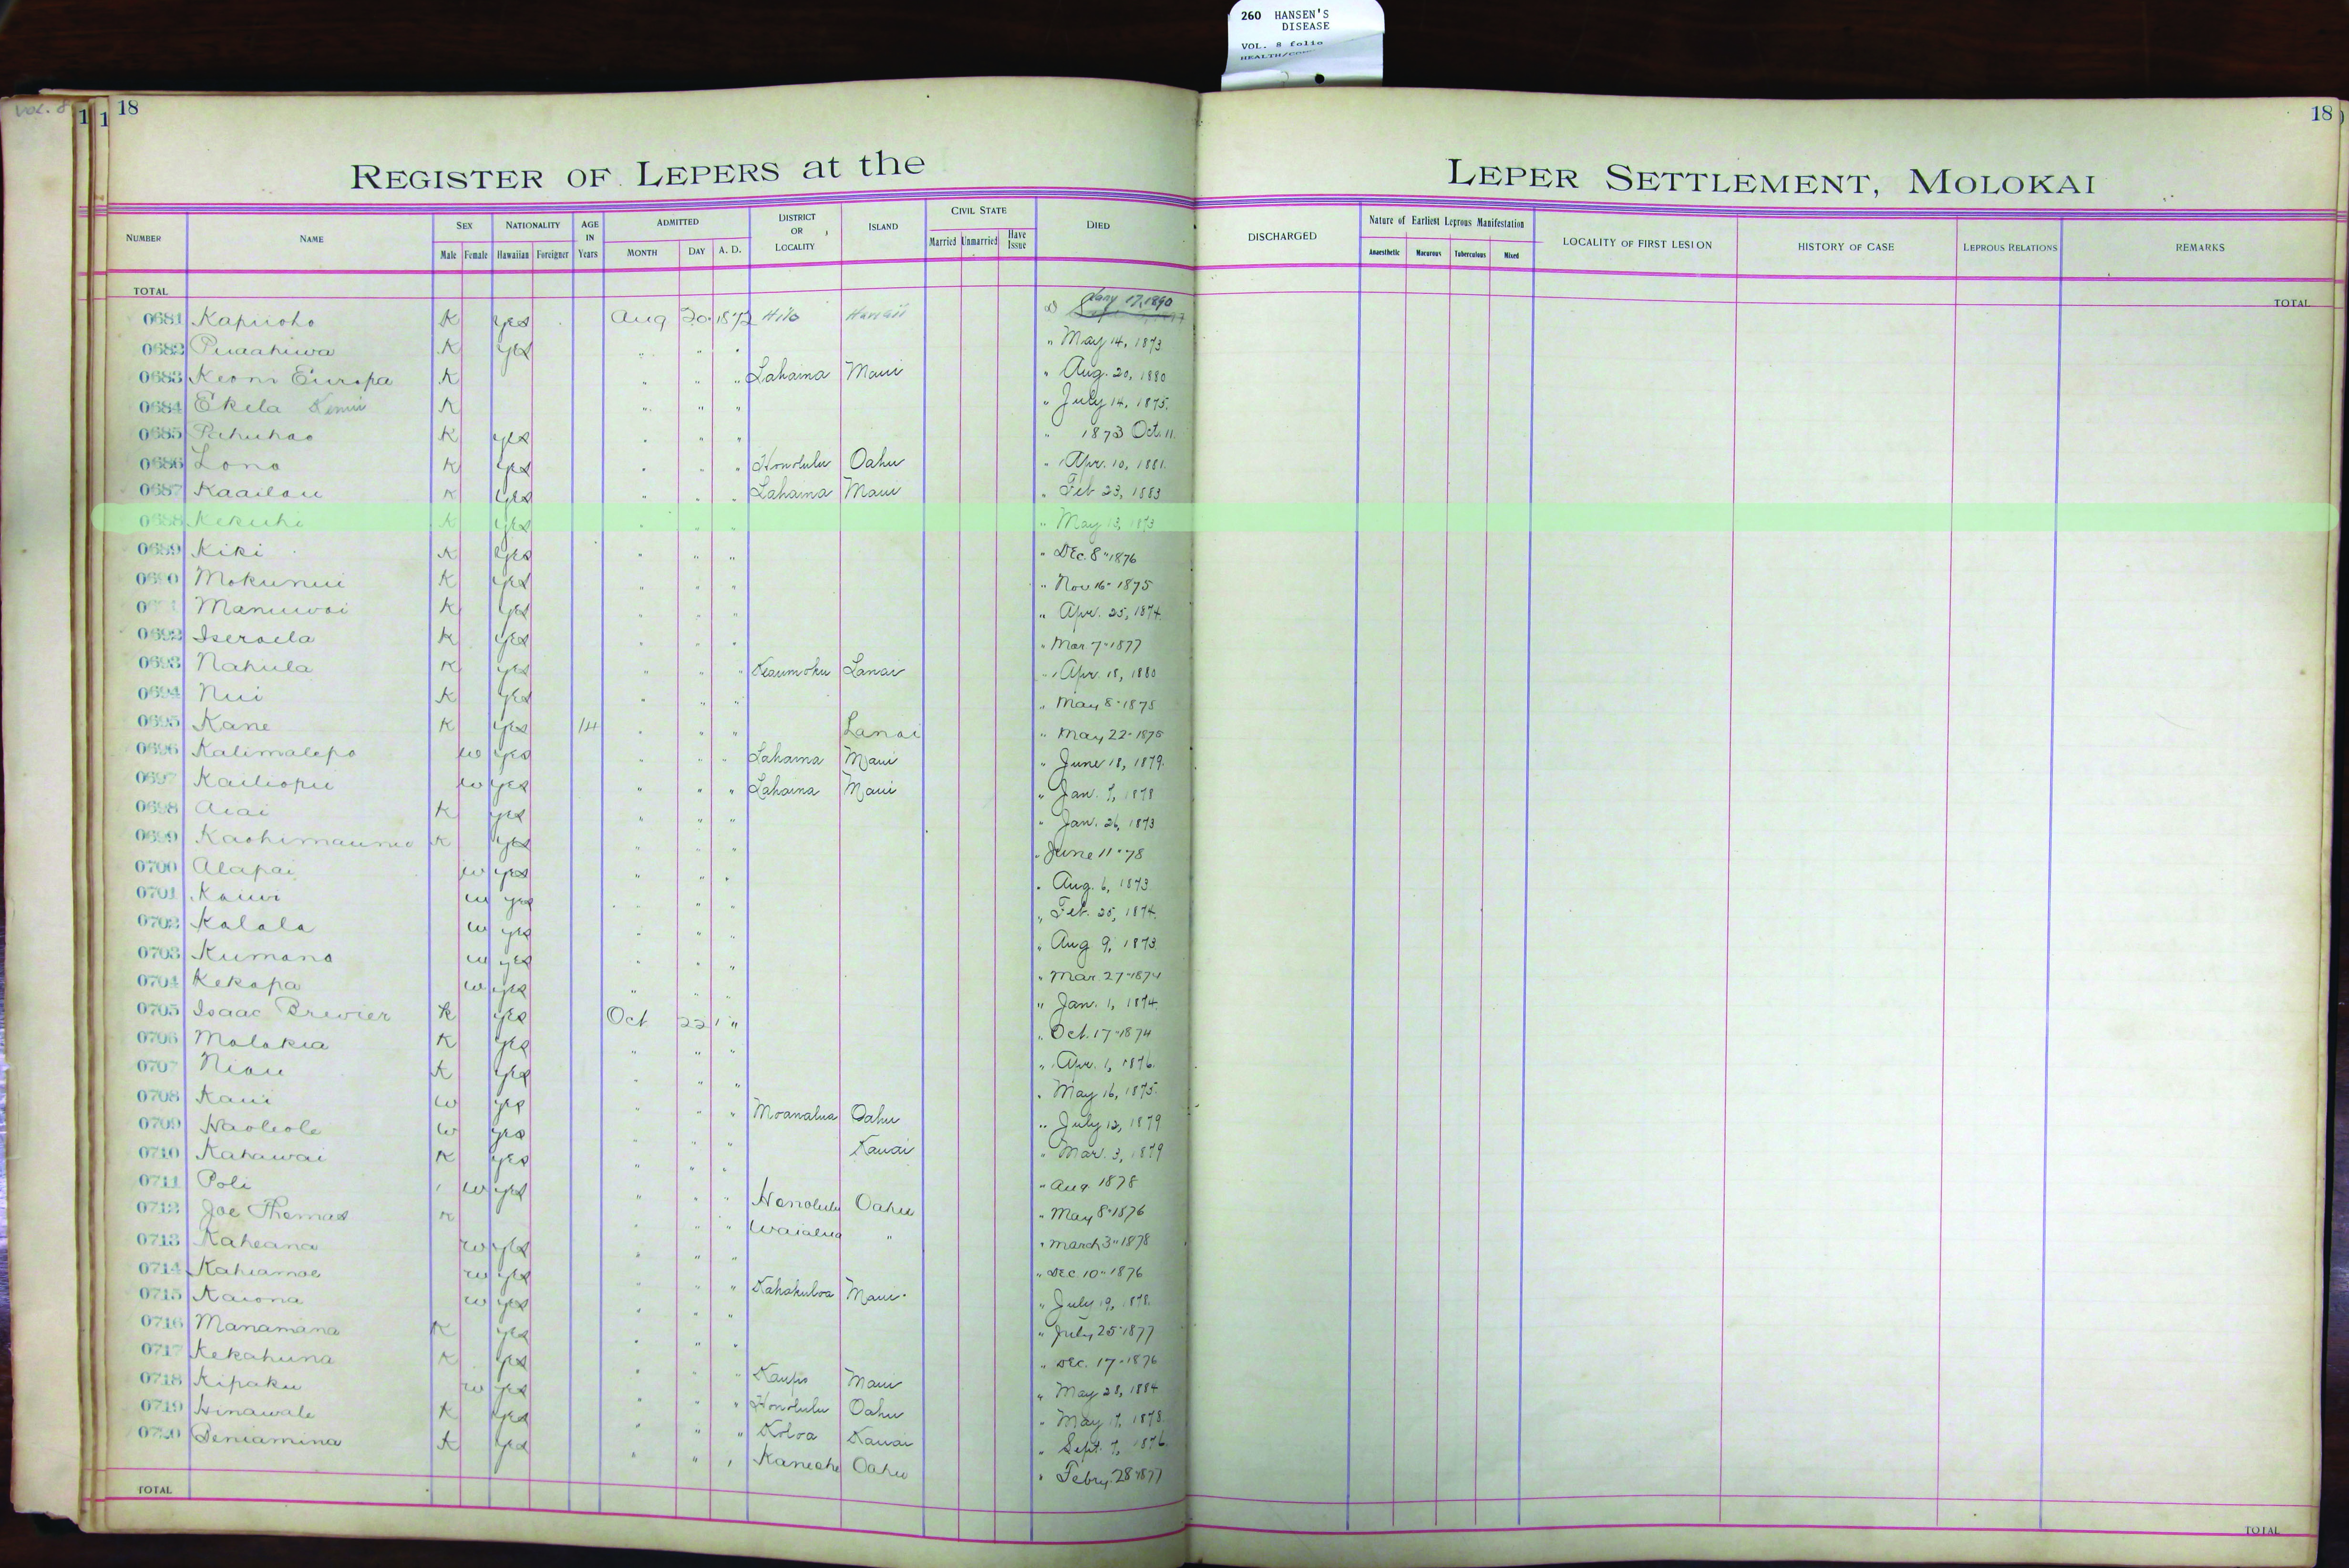 260 HANSEN'S
DISEASE
VOL. 8 folio
VOL. 8
1 1 18
18
REGISTER OF LEPERS at the LEPER SETTLEMENT, MOLOKAI
NUMBER NAME SEX Male Female NATIONALITY Hawaiian Foreigner AGE IN Years ADMITTED MONTH DAY A. D. DISTRICT OR LOCALITY ISLAND CIVIL STATE Married Unmarried Have Issue DIED DISCHARGED Nature of Earliest Leprous Manifestation Anaesthetic Macurous Tuberculous Mixed LOCALITY OF FIRST LESION HISTORY OF CASE LEPROUS RELATIONS REMARKS
TOTAL TOTAL
0681 Kapiioho K yes Aug 20 1872 Hilo Hawaii Jany 17, 1890
0682 Puaahiwa K yes " " " " May 14, 1873
0683 Keoni Europa K " " " Lahaina Maui " Aug. 20, 1880
0684 Ekela K " " " " July 14, 1875.
0685 Pahuhao K yes " " " " 1873 Oct. 11.
0686 Lono K yes " " " Honolulu Oahu " Apr. 10, 1881.
0687 Kaailau K yes " " " Lahaina Maui " Feb 23, 1883
0688 Kekuhi K yes " " " " May 13, 1873
0689 Kiki K yes " " " " Dec. 8" 1876
0690 Mokunui K yes " " " " Nov 16" 1875
Manuwai K yes " " " " Apr. 25, 1874.
0692 Iseraela K yes " " " " Mar. 7" 1877
0693 Nahula K yes " " " Keaumoku Lanai " Apr. 18, 1880
0694 Nui K yes " " " " May 8" 1875
0695 Kane K yes 14 " " " Lanai " May 22" 1875
0696 Kalimalepo w yes " " " Lahaina Maui " June 18, 1879.
0697 Kailiopu w yes " " " Lahaina Maui " Jan. 7, 1878
0698 Aiai K yes " " " " Jan. 26, 1873
0699 K yes " " " " June 11" 78
0700 Alapai w yes " " " " Aug. 6, 1873
0701 Kauwi w yes " " " " Feb. 25, 1874.
0702 Kalala w yes " " " " Aug 9, 1873.
0703 Kumano w yes " " " " Mar. 27" 1874
0704 Kekapa w yes " " " " Jan. 1, 1874.
0705 Isaac Brewier K yes Oct 22 " " Oct. 17" 1874
0706 Molokia K yes " " " " Apr. 1, 1876.
0707 Niau K yes " " " " May 16, 1875.
0708 Kaui w yes " " " Moanalua Oahu " July 12, 1879
0709 Haoleole w yes " " " Kauai " Mar. 3, 1879
0710 Kahawai K yes " " " " Aug 1878
0711 Poli w yes " " " Honolulu Oahu " May 8" 1876
0712 Joe Thomas K " " " Waialua " " March 3" 1878
0713 Kaheana w yes " " " " Dec. 10" 1876
0714 Kahiamoe w yes " " " Kahakuloa Maui " July 19, 1878.
0715 Kaiona w yes " " " " July 25" 1877
0716 Manamana K yes " " " " Dec. 17" 1876
0717 Kekahuna K yes " " " Kaupo Maui " May 28, 1884
0718 Kipaku w yes " " " Honolulu Oahu " May 17, 1878.
0719 Hinawale K yes " " " Koloa Kauai " Sept. 7, 1876.
0720 Beniamina K yes " " " Kaneohe Oahu " Febry. 28" 1877
TOTAL TOTAL